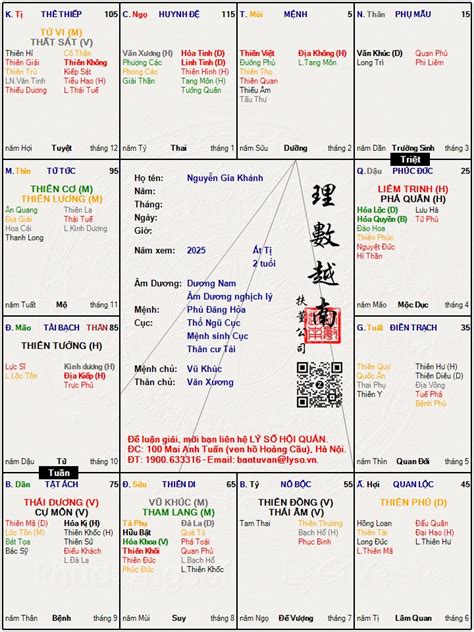 K. Tị THÊ THIẾP 105
TỬ VI (M)
THẤT SÁT (V)
Thiên Hỉ Cô Thần
Thiên Giải Thiên Không
Thiên Trù Kiếp Sát
LN.Văn Tinh Tiểu Hao (H)
Thiếu Dương L.Thái Tuế
năm Hợi Tuyệt tháng 12
C. Ngọ HUYNH ĐỆ 115
Văn Xương (H) Hỏa Tinh (D)
Phượng Các Linh Tinh (D)
Phong Cáo Thiên Hình (H)
Giải Thần Tang Môn (H)
Tướng Quân
năm Tý Thai tháng 1
T. Mùi MỆNH 5
Thiên Việt Địa Không (H)
Đường Phù L.Tang Môn
Thiên Quan
Thiếu Âm
Tấu Thư
năm Sửu Dưỡng tháng 2
N. Thân PHỤ MẪU 15
Văn Khúc (D) Quan Phù
Long Trì Phi Liêm
năm Dần Trường Sinh tháng 3
Triệt
M. Thìn TỬ TỨC 95
THIÊN CƠ (M)
THIÊN LƯƠNG (M)
Ân Quang Thiên La
Địa Giải Thái Tuế
Hoa Cái L.Kình Dương
Thanh Long
năm Tuất Mộ tháng 11
Q. Dậu PHÚC ĐỨC 25
LIÊM TRINH (H)
PHÁ QUÂN (H)
Hóa Lộc (D) Lưu Hà
Hóa Quyền (B) Tử Phù
Đào Hoa
Thiên Phúc
Nguyệt Đức
Hỉ Thần
năm Mão Mộc Dục tháng 4
Họ tên: Nguyễn Gia Khánh
Năm:
Tháng:
Ngày:
Giờ:
Năm xem: 2025 Ất Tị
2 tuổi
Âm Dương: Dương Nam
Âm Dương nghịch lý
Mệnh: Phú Đăng Hỏa
Cục: Thổ Ngũ Cục
Mệnh sinh Cục
Thân cư Tài
Mệnh chủ: Vũ Khúc
Thân chủ: Văn Xương
理數越南
扶董公司
Để luận giải, mời bạn liên hệ LÝ SỐ HỘI QUÁN.
ĐC: 100 Mai Anh Tuấn (ven hồ Hoàng Cầu), Hà Nội.
ĐT: 1900.633316 - Email: bantuvan@lyso.vn.
Đ. Mão TÀI BẠCH THÂN 85
THIÊN TƯỚNG (H)
Lực Sĩ Kình dương (H)
L.Lộc Tồn Địa Kiếp (H)
Trực Phù
năm Dậu Tử tháng 10
Tuần
G. Tuất ĐIỀN TRẠCH 35
Thiên Quý Thiên Hư (H)
Quốc Ấn Thiên Diêu (D)
Thai Phụ Thiên Khốc (H)
Thiên Y
năm Thìn Quan Đới tháng 5
B. Dần TẬT ÁCH 75
THÁI DƯƠNG (V)
CỰ MÔN (V)
Thiên Mã (D) Hóa Kị (H)
Lộc Tồn (M) Thiên Khốc (H)
Bát Tọa Thiên Sứ
Bác Sỹ Điếu Khách
L.Đà La
năm Thân Bệnh tháng 9
Đ. Sửu THIÊN DI 65
VŨ KHÚC (M)
THAM LANG (M)
Tả Phụ Đà La (D)
Hữu Bật Quả Tú
Hóa Khoa (V) Phá Toái
Thiên Khôi Quan Phủ
Thiên Đức
L.Thiên Khốc
năm Mùi Suy tháng 8
B. Tý NÔ BỘC 55
THIÊN ĐỒNG (V)
THÁI ÂM (V)
Tam Thai Thiên Thương
Bạch Hổ (H)
Phục Binh
năm Ngọ Đế Vượng tháng 7
Ấ. Hợi QUAN LỘC 45
THIÊN PHỦ (D)
Hồng Loan Đẩu Quân
Thiên Tài Đại Hao (H)
L.Thiên Mã L.Thiên Hư
năm Tị tháng 6